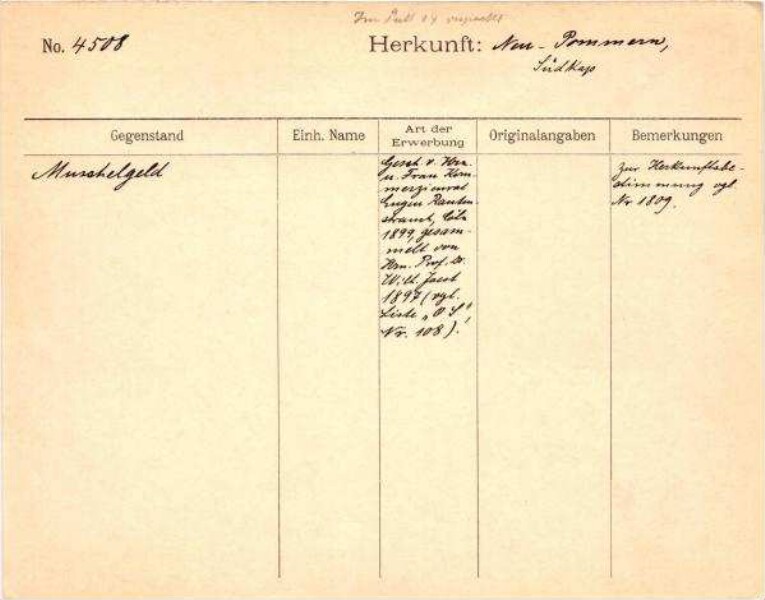 Im Pult 14
No. 4508 Herkunft: Neu-Pommern,
Südkap
Gegenstand
Einh. Name
Art der
Erwerbung
Originalangaben
Bemerkungen
Muschelgeld
Gesch. v. Hrn.
u. Frau Kom-
merzienrat
Eugen Rauten-
strauch, Cöln
1899, gesam-
melt von
Hrn. Prof. Dr.
1897 (vgl.
Liste „O S",
Nr. 108).
Zur Herkunftsbe-
stimmung vgl.
Nr. 1809.